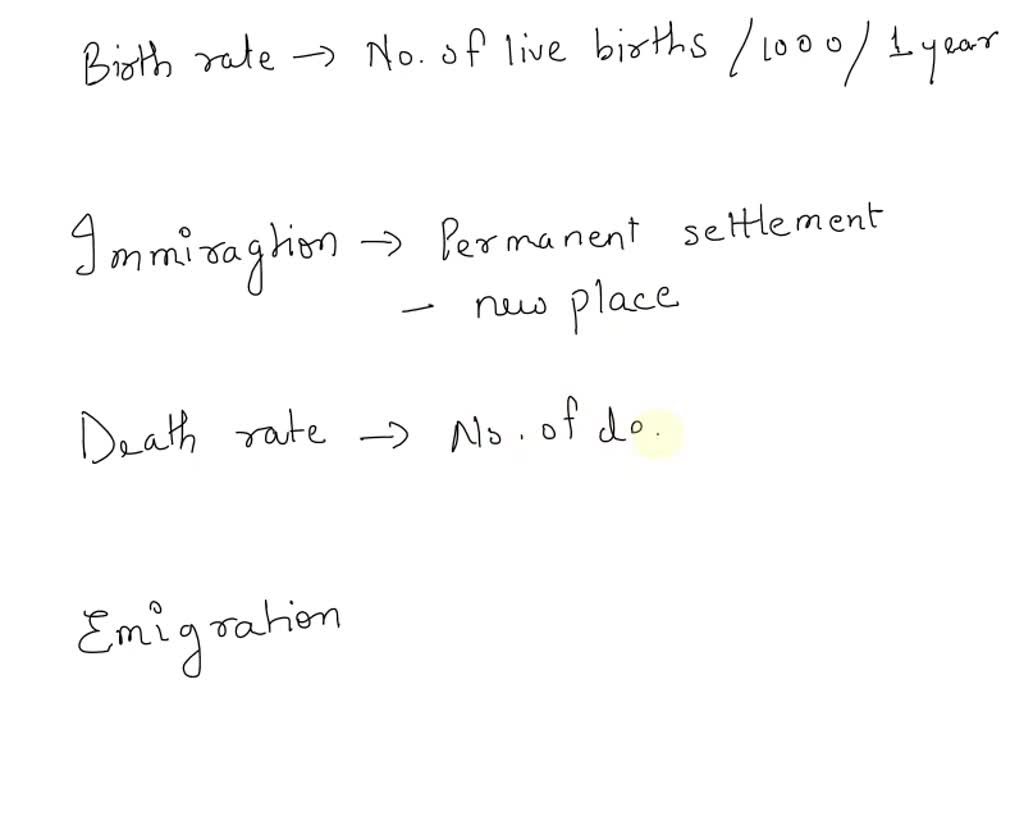 Birth rate → No. of live births / 1000 / 1 year
Immiragtion → Permanent settlement
- new place
Death rate → No. of do.
Emigration